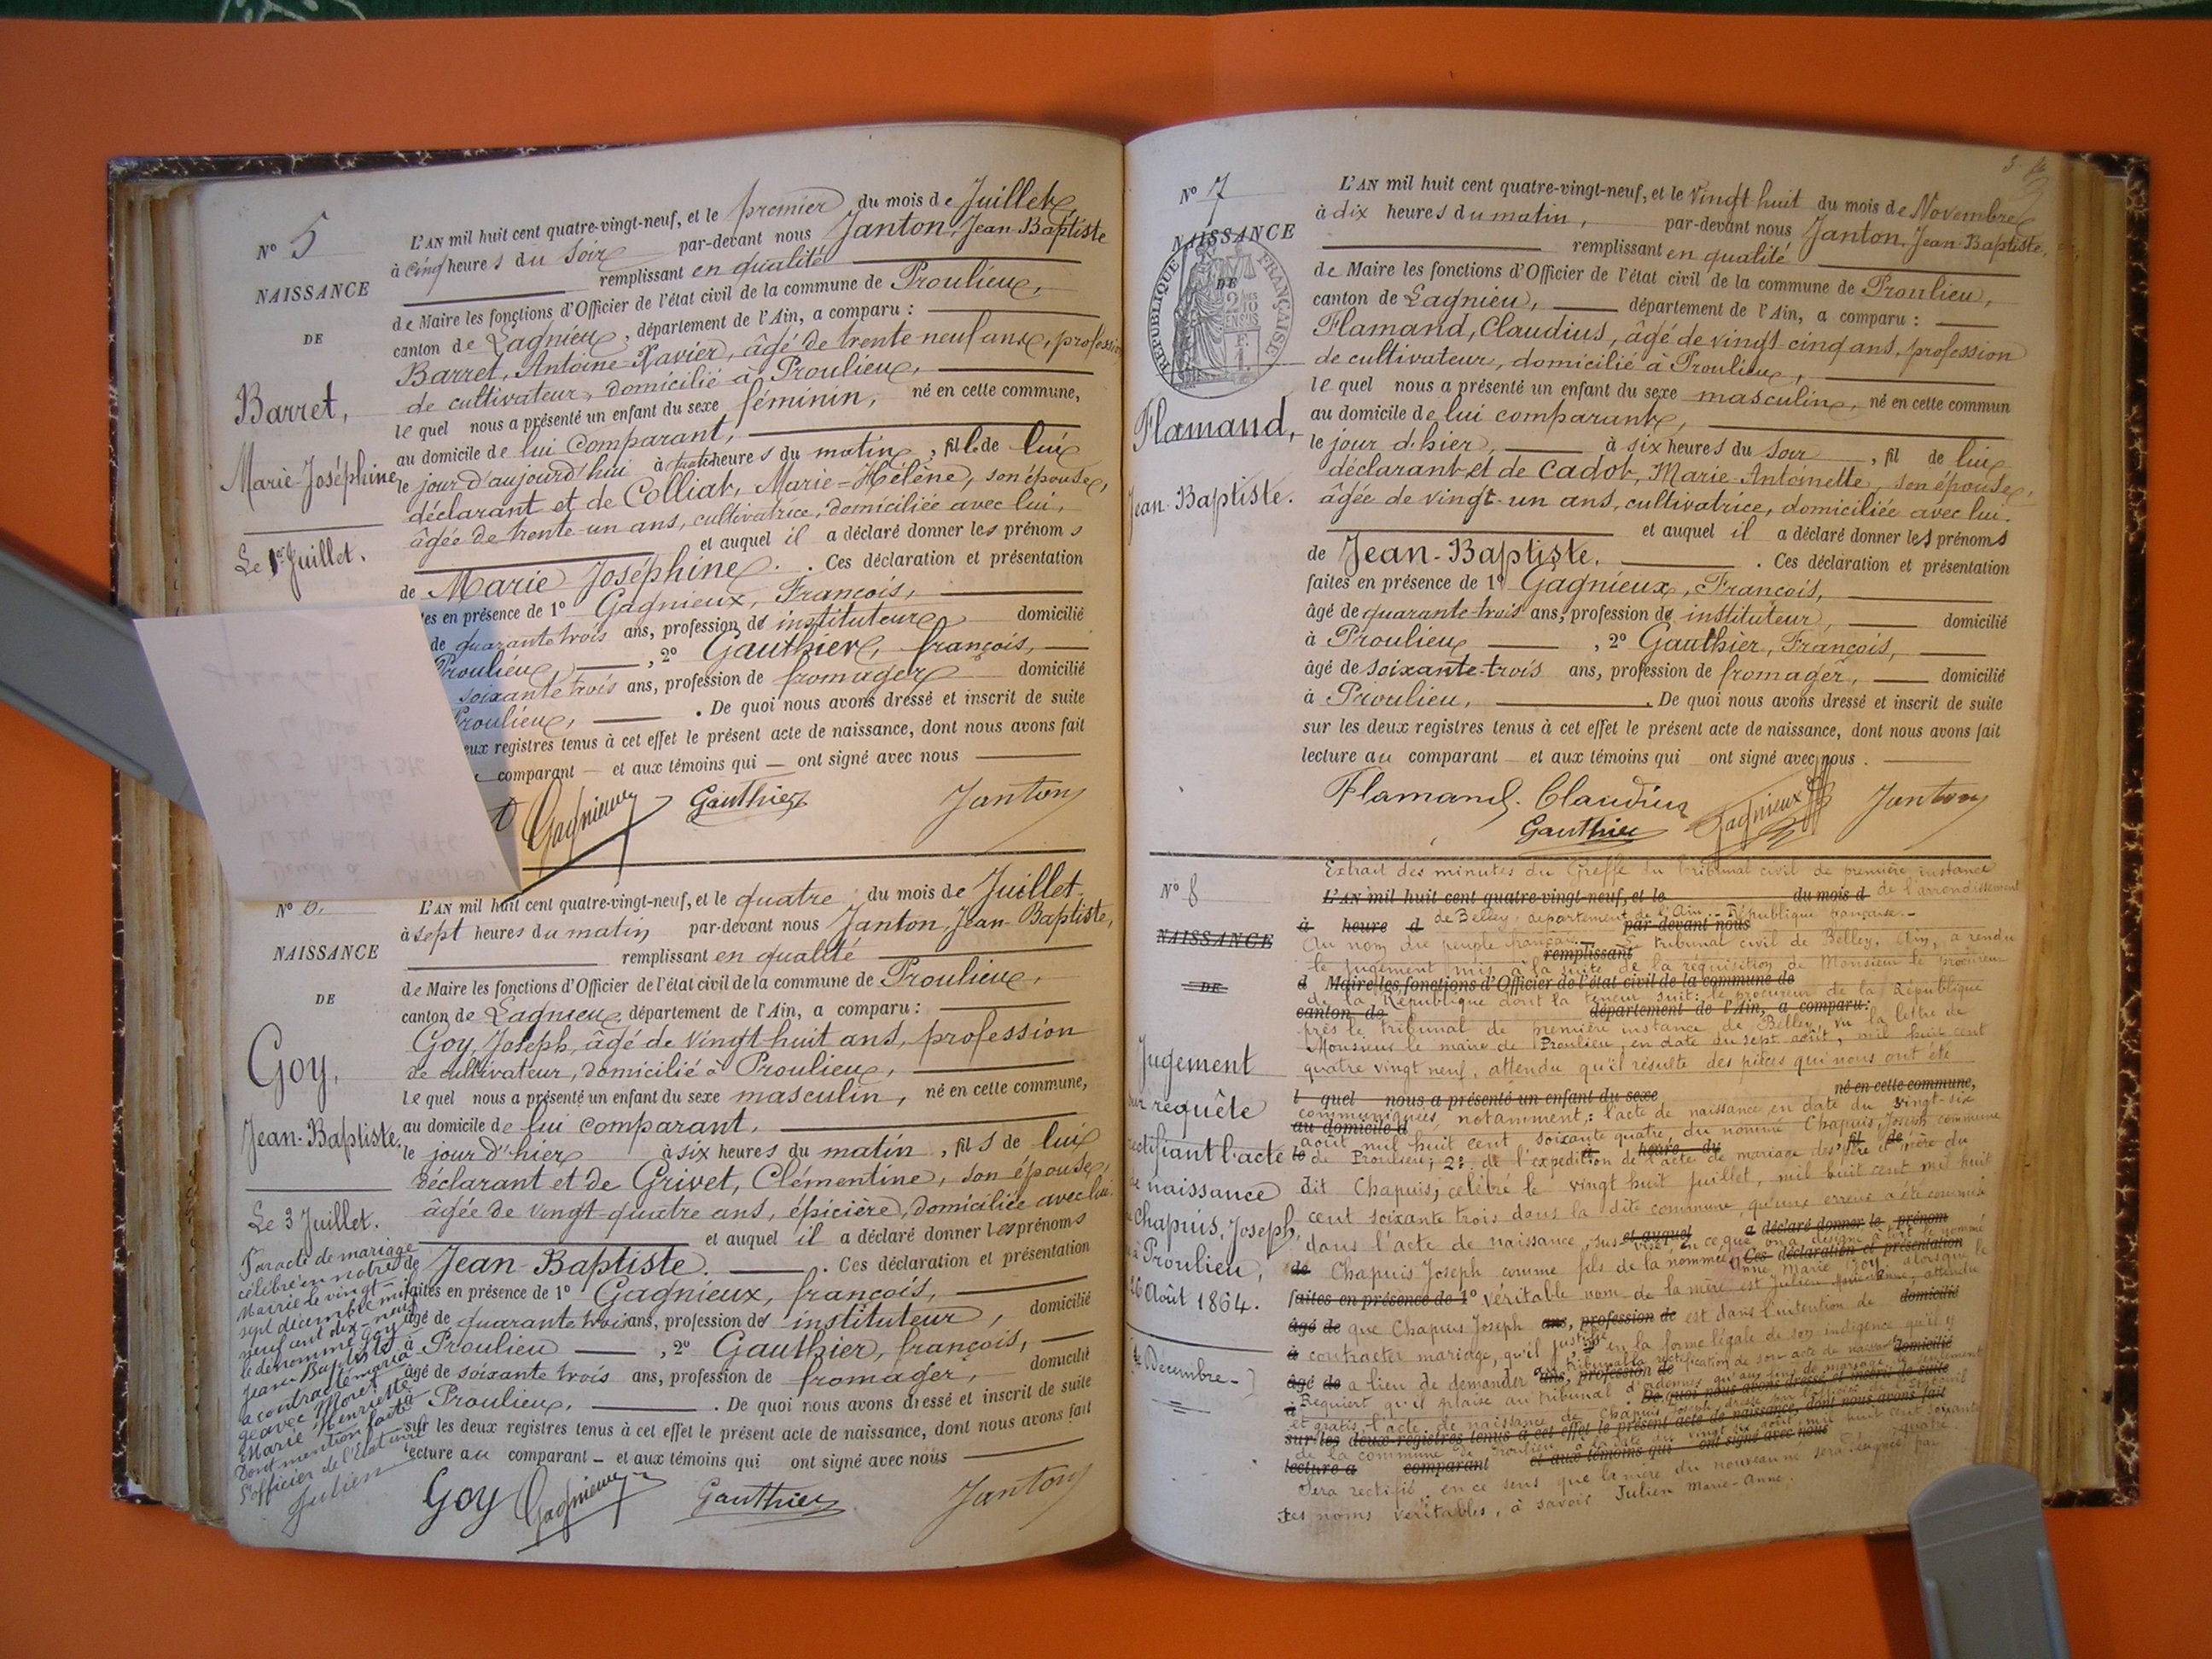 N° 5
NAISSANCE
DE
Barret,
Marie-Joséphine
Le 1er Juillet.
L'AN mil huit cent quatre-vingt-neuf, et le premier du mois de Juillet,
à cinq heures du soir par-devant nous Janton, Jean-Baptiste
remplissant en qualité
de Maire les fonctions d'Officier de l'état civil de la commune de Proulieu,
canton de Lagnieu, département de l'Ain, a comparu :
Barret, Antoine-Xavier, âgé de trente neuf ans, profession
de cultivateur, domicilié à Proulieu,
lequel nous a présenté un enfant du sexe féminin, né en cette commune,
au domicile de lui comparant,
le jour d'aujourd'hui à heures du matin, fille de lui
déclarant et de Colliat, Marie-Hélène, son épouse,
âgée de trente-un ans, cultivatrice, domiciliée avec lui,
et auquel il a déclaré donner les prénoms
de Marie Joséphine. Ces déclaration et présentation
es en présence de 1° Gagnieux, François,
de quarante trois ans, profession de instituteur domicilié
Proulieu, , 2° Gauthier, françois,
soixante trois ans, profession de fromager domicilié
Proulieu, . De quoi nous avons dressé et inscrit de suite
eux registres tenus à cet effet le présent acte de naissance, dont nous avons fait
comparant et aux témoins qui ont signé avec nous
Gagnieux Gauthier Janton
N° 6.
NAISSANCE
DE
Goy,
Jean-Baptiste.
Le 3 Juillet.
Par acte de mariage
célébré en notre
Mairie le vingt-
sept décembre mil
neuf cent dix-neuf
le dénommé Goy
Jean Baptiste
a contracté maria
ge avec Morel
Marie Henriette
Dont mention faite
L'officier de l'Etat civil
Julien
L'AN mil huit cent quatre-vingt-neuf, et le quatre du mois de Juillet
à sept heures du matin par-devant nous Janton, Jean-Baptiste,
remplissant en qualité
de Maire les fonctions d'Officier de l'état civil de la commune de Proulieu,
canton de Lagnieu, département de l'Ain, a comparu :
Goy, Joseph, âgé de vingt huit ans, profession
de cultivateur, domicilié à Proulieu,
lequel nous a présenté un enfant du sexe masculin, né en cette commune,
au domicile de lui comparant,
le jour d'hier à six heures du matin, fils de lui
déclarant et de Grivet, Clémentine, son épouse,
âgée de vingt-quatre ans, épicière, domiciliée avec lui.
et auquel il a déclaré donner les prénoms
de Jean Baptiste. Ces déclaration et présentation
faites en présence de 1° Gagnieux, françois,
âgé de quarante trois ans, profession de instituteur, domicilié
à Proulieu , 2° Gauthier, françois,
âgé de soixante trois ans, profession de fromager, domicilié
à Proulieu, . De quoi nous avons dressé et inscrit de suite
sur les deux registres tenus à cet effet le présent acte de naissance, dont nous avons fait
lecture au comparant et aux témoins qui ont signé avec nous
Goy Gagnieux Gauthier Janton
N° 7
NAISSANCE
DE
RÉPUBLIQUE FRANÇAISE
Flamand,
Jean-Baptiste.
L'AN mil huit cent quatre-vingt-neuf, et le vingt huit du mois de Novembre
à dix heures du matin, par-devant nous Janton, Jean-Baptiste,
remplissant en qualité
de Maire les fonctions d'Officier de l'état civil de la commune de Proulieu,
canton de Lagnieu, département de l'Ain, a comparu :
Flamand, Claudius, âgé de vingt-cinq ans, profession
de cultivateur, domicilié à Proulieu,
lequel nous a présenté un enfant du sexe masculin, né en cette commun
au domicile de lui comparant,
le jour d'hier, à six heures du soir, fil de lui
déclarant et de Cadot, Marie-Antoinette, son épouse,
âgée de vingt-un ans, cultivatrice, domiciliée avec lui.
et auquel il a déclaré donner les prénoms
de Jean-Baptiste. Ces déclaration et présentation
faites en présence de 1° Gagnieux, François,
âgé de quarante-trois ans, profession de instituteur, domicilié
à Proulieu , 2° Gauthier, François,
âgé de soixante-trois ans, profession de fromager, domicilié
à Proulieu, . De quoi nous avons dressé et inscrit de suite
sur les deux registres tenus à cet effet le présent acte de naissance, dont nous avons fait
lecture au comparant et aux témoins qui ont signé avec nous.
Flamand. Claudius Gagnieux Janton
Gauthier
N° 8
NAISSANCE
DE
Jugement
sur requête
rectifiant l'acte
de naissance
Chapuis, Joseph,
Proulieu,
26 Août 1864.
Décembre
Extrait des minutes du Greffe du tribunal civil de première instance
L'AN mil huit cent quatre-vingt-neuf, et le du mois d de l'arrondissement
de Belley, département de l'Ain. - République française. -
à heure d par-devant nous
Au nom du peuple français. Le tribunal civil de Belley, Ain, a rendu
remplissant
le jugement mis à la suite de la réquisition de Monsieur le Procureur
d Maire les fonctions d'Officier de l'état civil de la commune de
de la République dont la teneur suit : le procureur de la République
canton de département de l'Ain, a comparu :
près le tribunal de première instance de Belley, vu la lettre de
Monsieur le maire de Proulieu, en date du sept août, mil huit cent
quatre vingt neuf, attendu qu'il résulte des pièces qui nous ont été
l quel nous a présenté un enfant du sexe né en cette commune,
communiquées, notamment : l'acte de naissance en date du vingt-six
au domicile d
août mil huit cent soixante quatre, du nommé Chapuis, Joseph commune
de Proulieu; 2° de l'expédition de l'acte de mariage des père et mère du
dit Chapuis, célébré le vingt huit juillet, mil huit cent mil huit
cent soixante trois dans la dite commune, qu'une erreur a été commise
et auquel a déclaré donner le prénom
dans l'acte de naissance susvisé, en ce que on a désigné à tort le nommé
de Ces déclaration et présentation
Chapuis Joseph comme fils de la nommée Anne Marie Goy, alors que le
faites en présence de 1° véritable nom de la mère est Julien Marie Anne, attendu
âgé de que Chapuis Joseph ans, profession de est dans l'intention de domicilié
à contracter mariage, qu'il justifie en la forme légale de son indigence qu'il y
âgé de a lieu de demander au tribunal la rectification de son acte de naissance
ans, profession de domicilié
Requiert qu'il plaise au tribunal d'ordonner qu'aux fins de mariage seulement
De quoi nous avons dressé et inscrit de suite
et gratis, l'acte de naissance de Chapuis Joseph, dressé par l'officier de l'état civil
sur les deux registres tenus à cet effet le présent acte de naissance, dont nous avons fait
de la commune de Proulieu, à la date du vingt six août mil huit cent soixante quatre
lecture a comparant et aux témoins qui ont signé avec nous
Sera rectifié, en ce sens que la mère du nouveau né sera désignée par
ses noms véritables, à savoir Julien Marie-Anne.